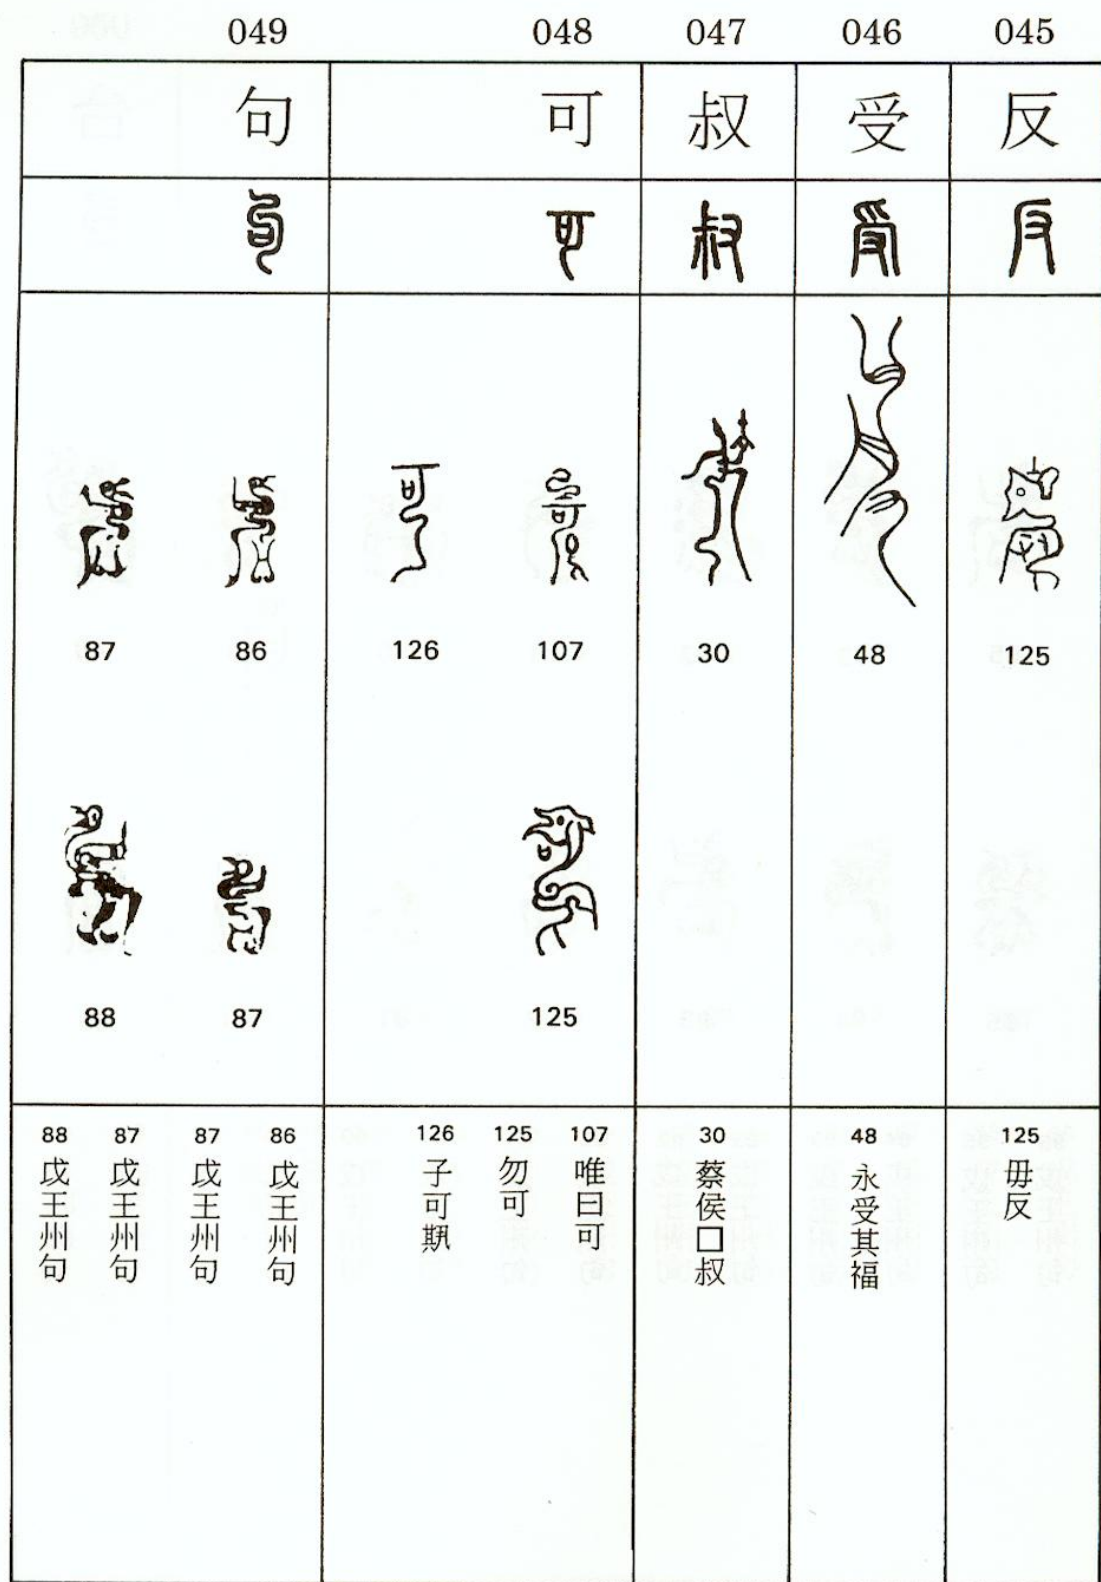 045
反
125
125
毋反
046
受
48
48
永受其福
047
叔
30
30
蔡侯□叔
048
可
107
125
126
107
唯曰可
125
勿可
126
子可
049
句
86
87
87
88
86
戉王州句
87
戉王州句
87
戉王州句
88
戉王州句